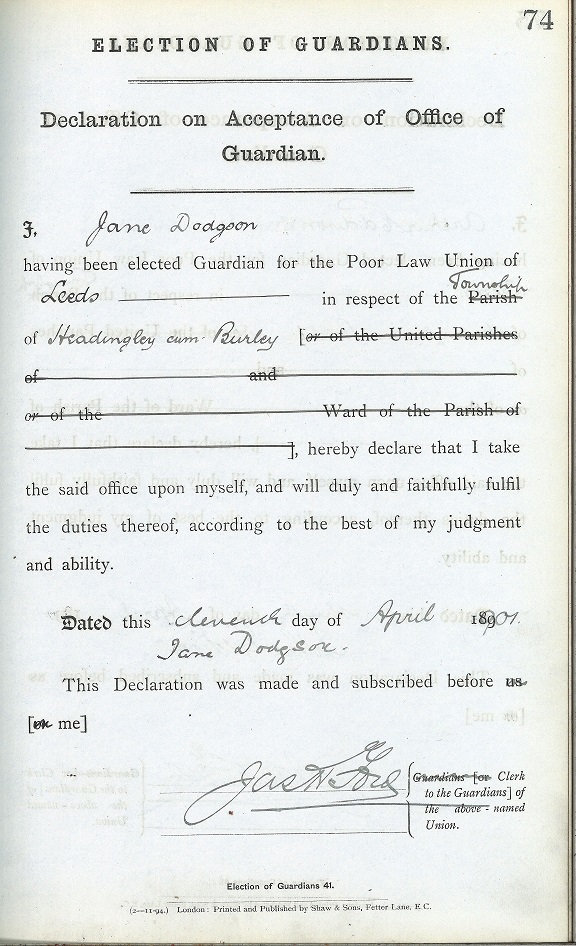 74
ELECTION OF GUARDIANS.
Declaration on Acceptance of Office of
Guardian.
I, Jane Dodgson
having been elected Guardian for the Poor Law Union of
Township
Leeds in respect of the Parish
of Headingley cum Burley [or of the United Parishes
of and
or of the Ward of the Parish of
], hereby declare that I take
the said office upon myself, and will duly and faithfully fulfil
the duties thereof, according to the best of my judgment
and ability.
Dated this eleventh day of April 1901.
Jane Dodgson.
This Declaration was made and subscribed before us
[or me]
Jas H Ford
Guardians [or Clerk
to the Guardians] of
the above-named
Union.
Election of Guardians 41.
(2—11-94.) London: Printed and Published by Shaw & Sons, Fetter Lane, E.C.